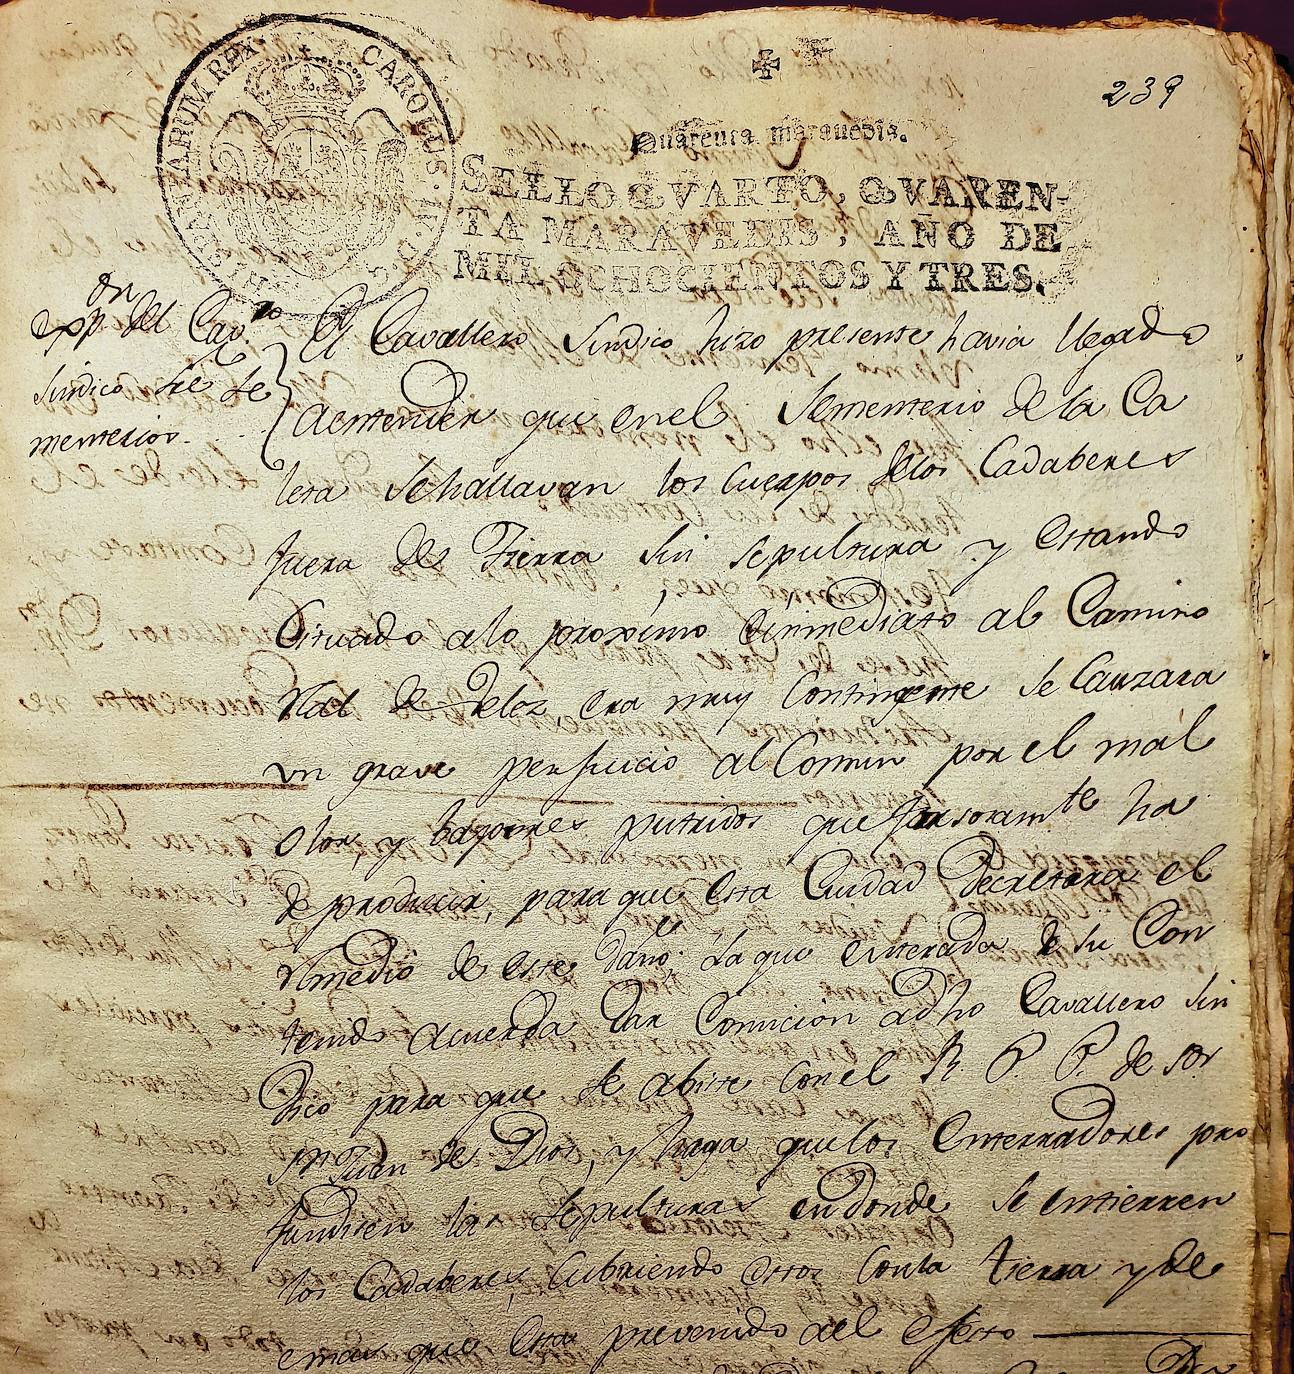 HISPANIARUM REX CAROLUS IV D G
239
Quarenta maravedis.
SELLO QVARTO, QVAREN-
TA MARAVEDIS, AÑO DE
MIL OCHOCIENTOS Y TRES.
exp.on del Cav.ro
Sindico sre Se
menterios
El Cavallero Sindico hizo presente havia llegado
aentender que enel Sementerio de la Ca
leta Sehallavan los Cuerpos delos Cadaberes
fuera de Tierra sin sepultura y estando
Cituado alo proximo einmediato al Camino
Rl de Velez, era muy Contingente se Cauzara
un grave perjuicio al Comun por el mal
olor, y bapores putridos que ha
de producir, para que esta Ciudad Decretara el
Remedio de este daño. La que enterada de su Con
tenido acuerda Dar Comicion adho Cavallero Sin
dico para que se abiste Con el R. P. P. de sor
Sn Juan de Dios, y haga quelos Enterradores pro
fundisen las Sepulturas endonde se entierren
los Cadaberes, Cubriendo estos Conla tierra y de
emas que esta prevenido al efecto